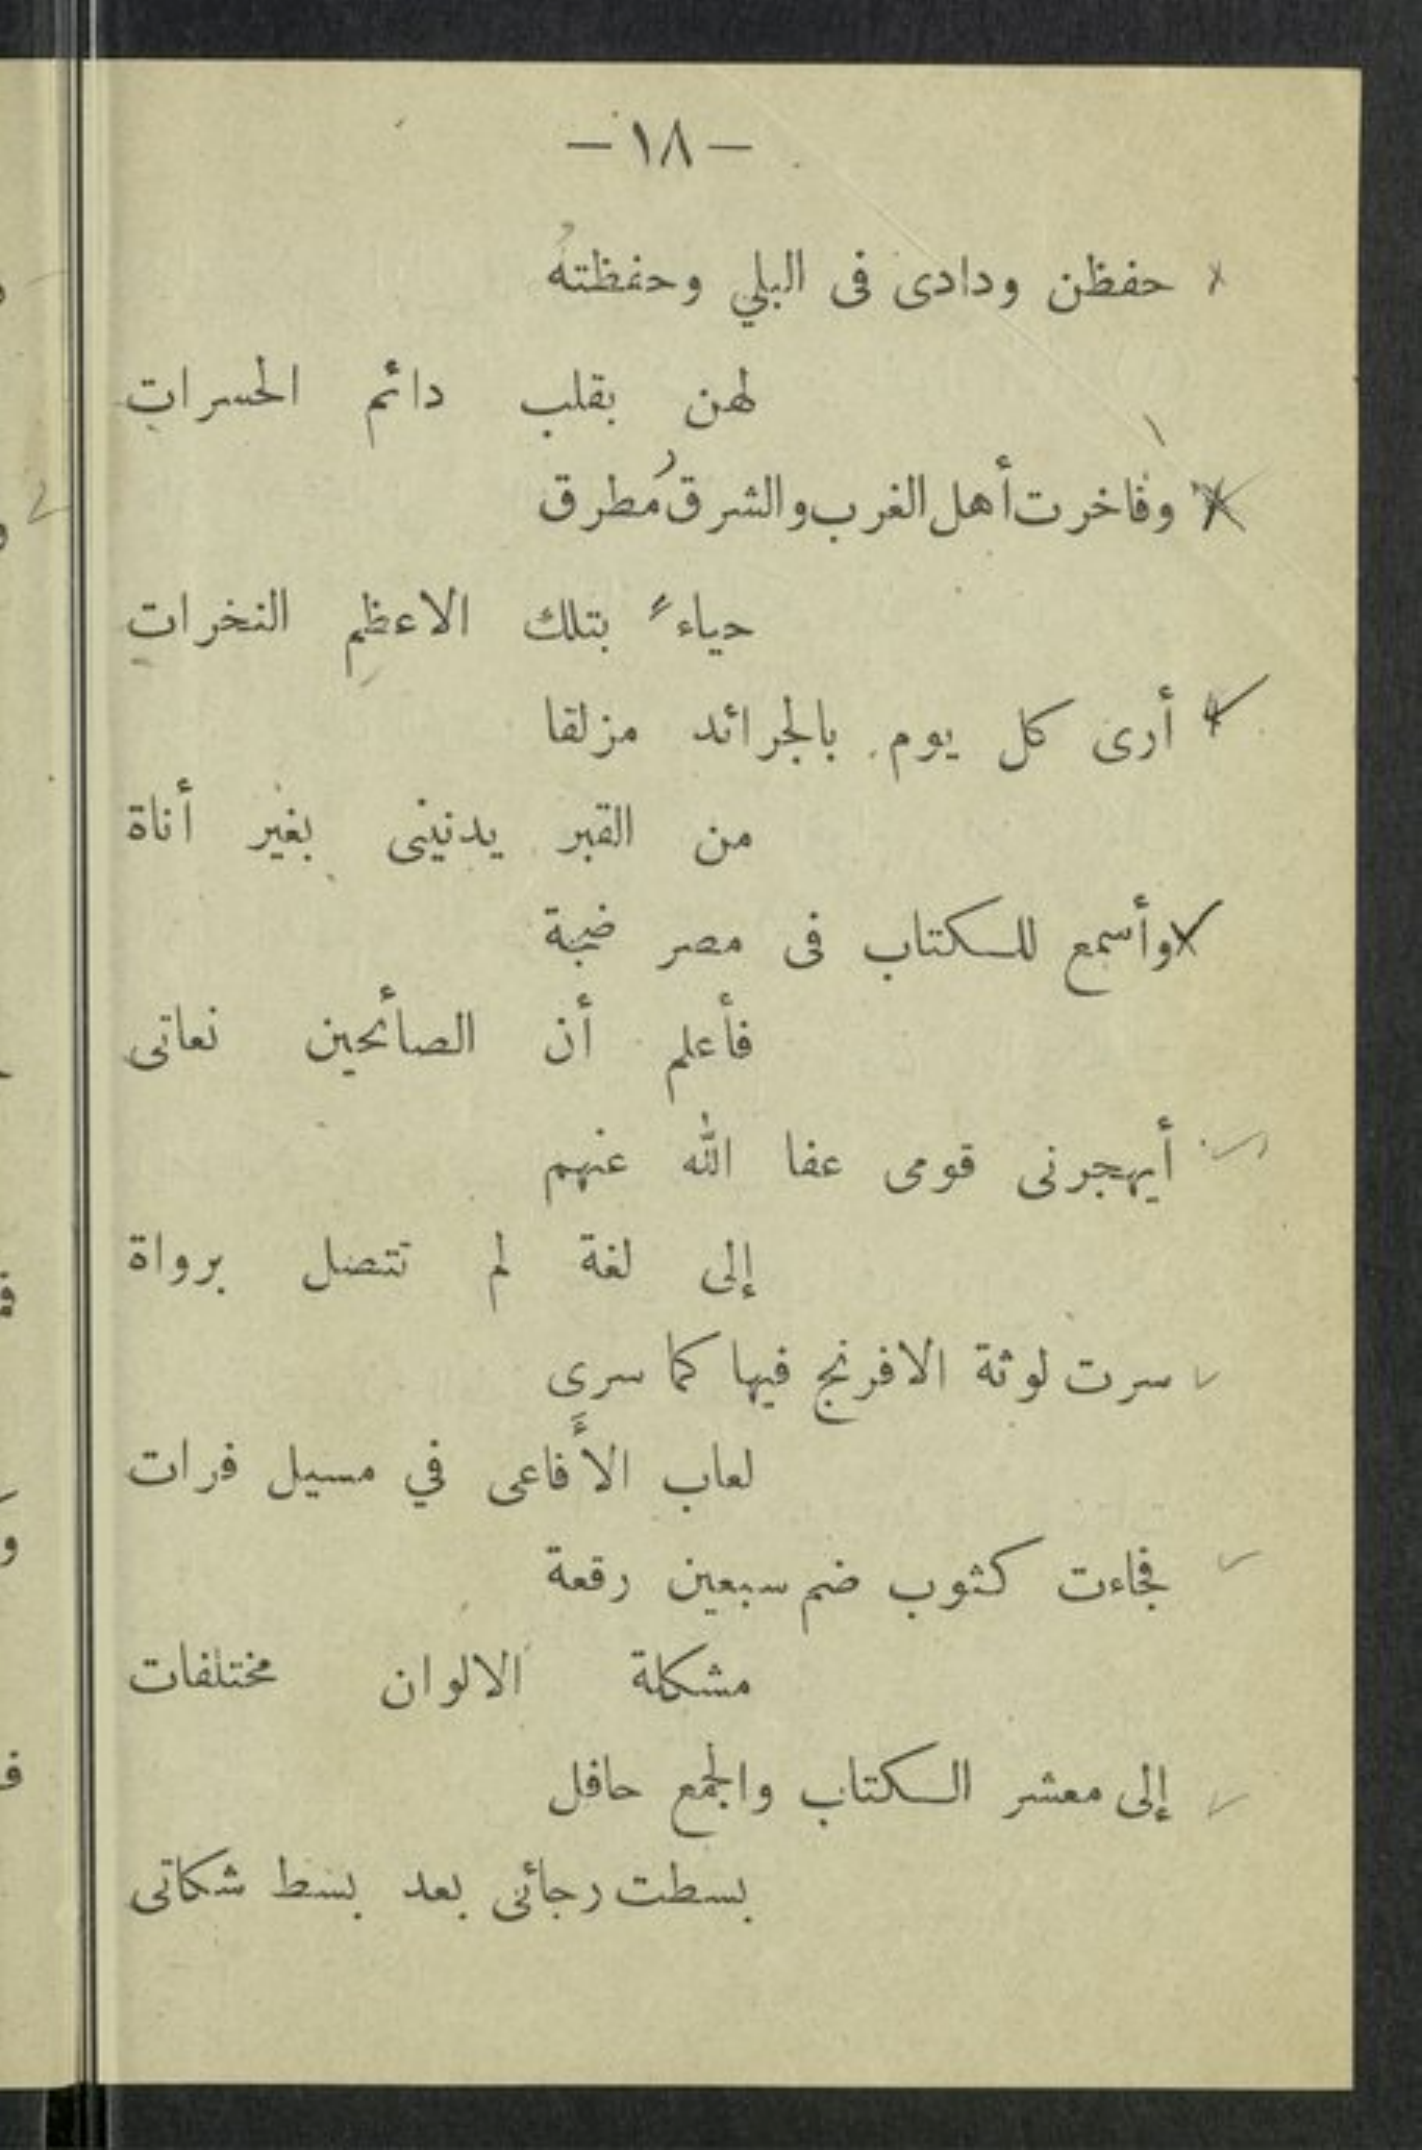 — ١٨ —
حفظن ودادى فى البلي وحفظتهُ
لهن بقلب دائم الحسراتِ
وفاخرت أهل الغرب والشرقُ مُطرق
حياءً بتلك الاعظمِ النخراتِ
أرى كل يوم بالجرائد مزلقا
من القبر يدنينى بغير أناة
وأسمع للكتاب فى مصر ضجة
فأعلم أن الصائحين نعاتى
أيهجرنى قومى عفا الله عنهم
إلى لغة لم تتصل برواة
سرت لوثة الافرنج فيها كما سرى
لعاب الأَفاعى في مسيل فرات
فجاءت كثوب ضم سبعين رقعة
مشكلة الالوان مختلفات
إلى معشر الكتاب والجمع حافل
بسطت رجائى بعد بسط شكاتى